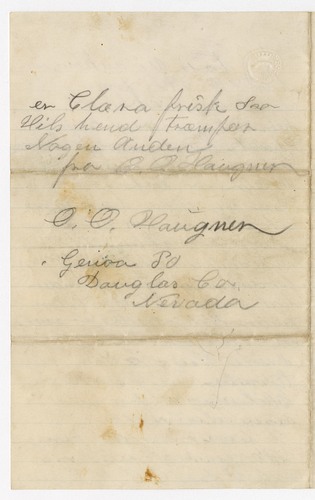 er Clara frisk saa
Hils hend
Nogen Anden
fra O. P. Haugner
O. P. Haugner
Genoa PO
Douglas Co.
Nevada